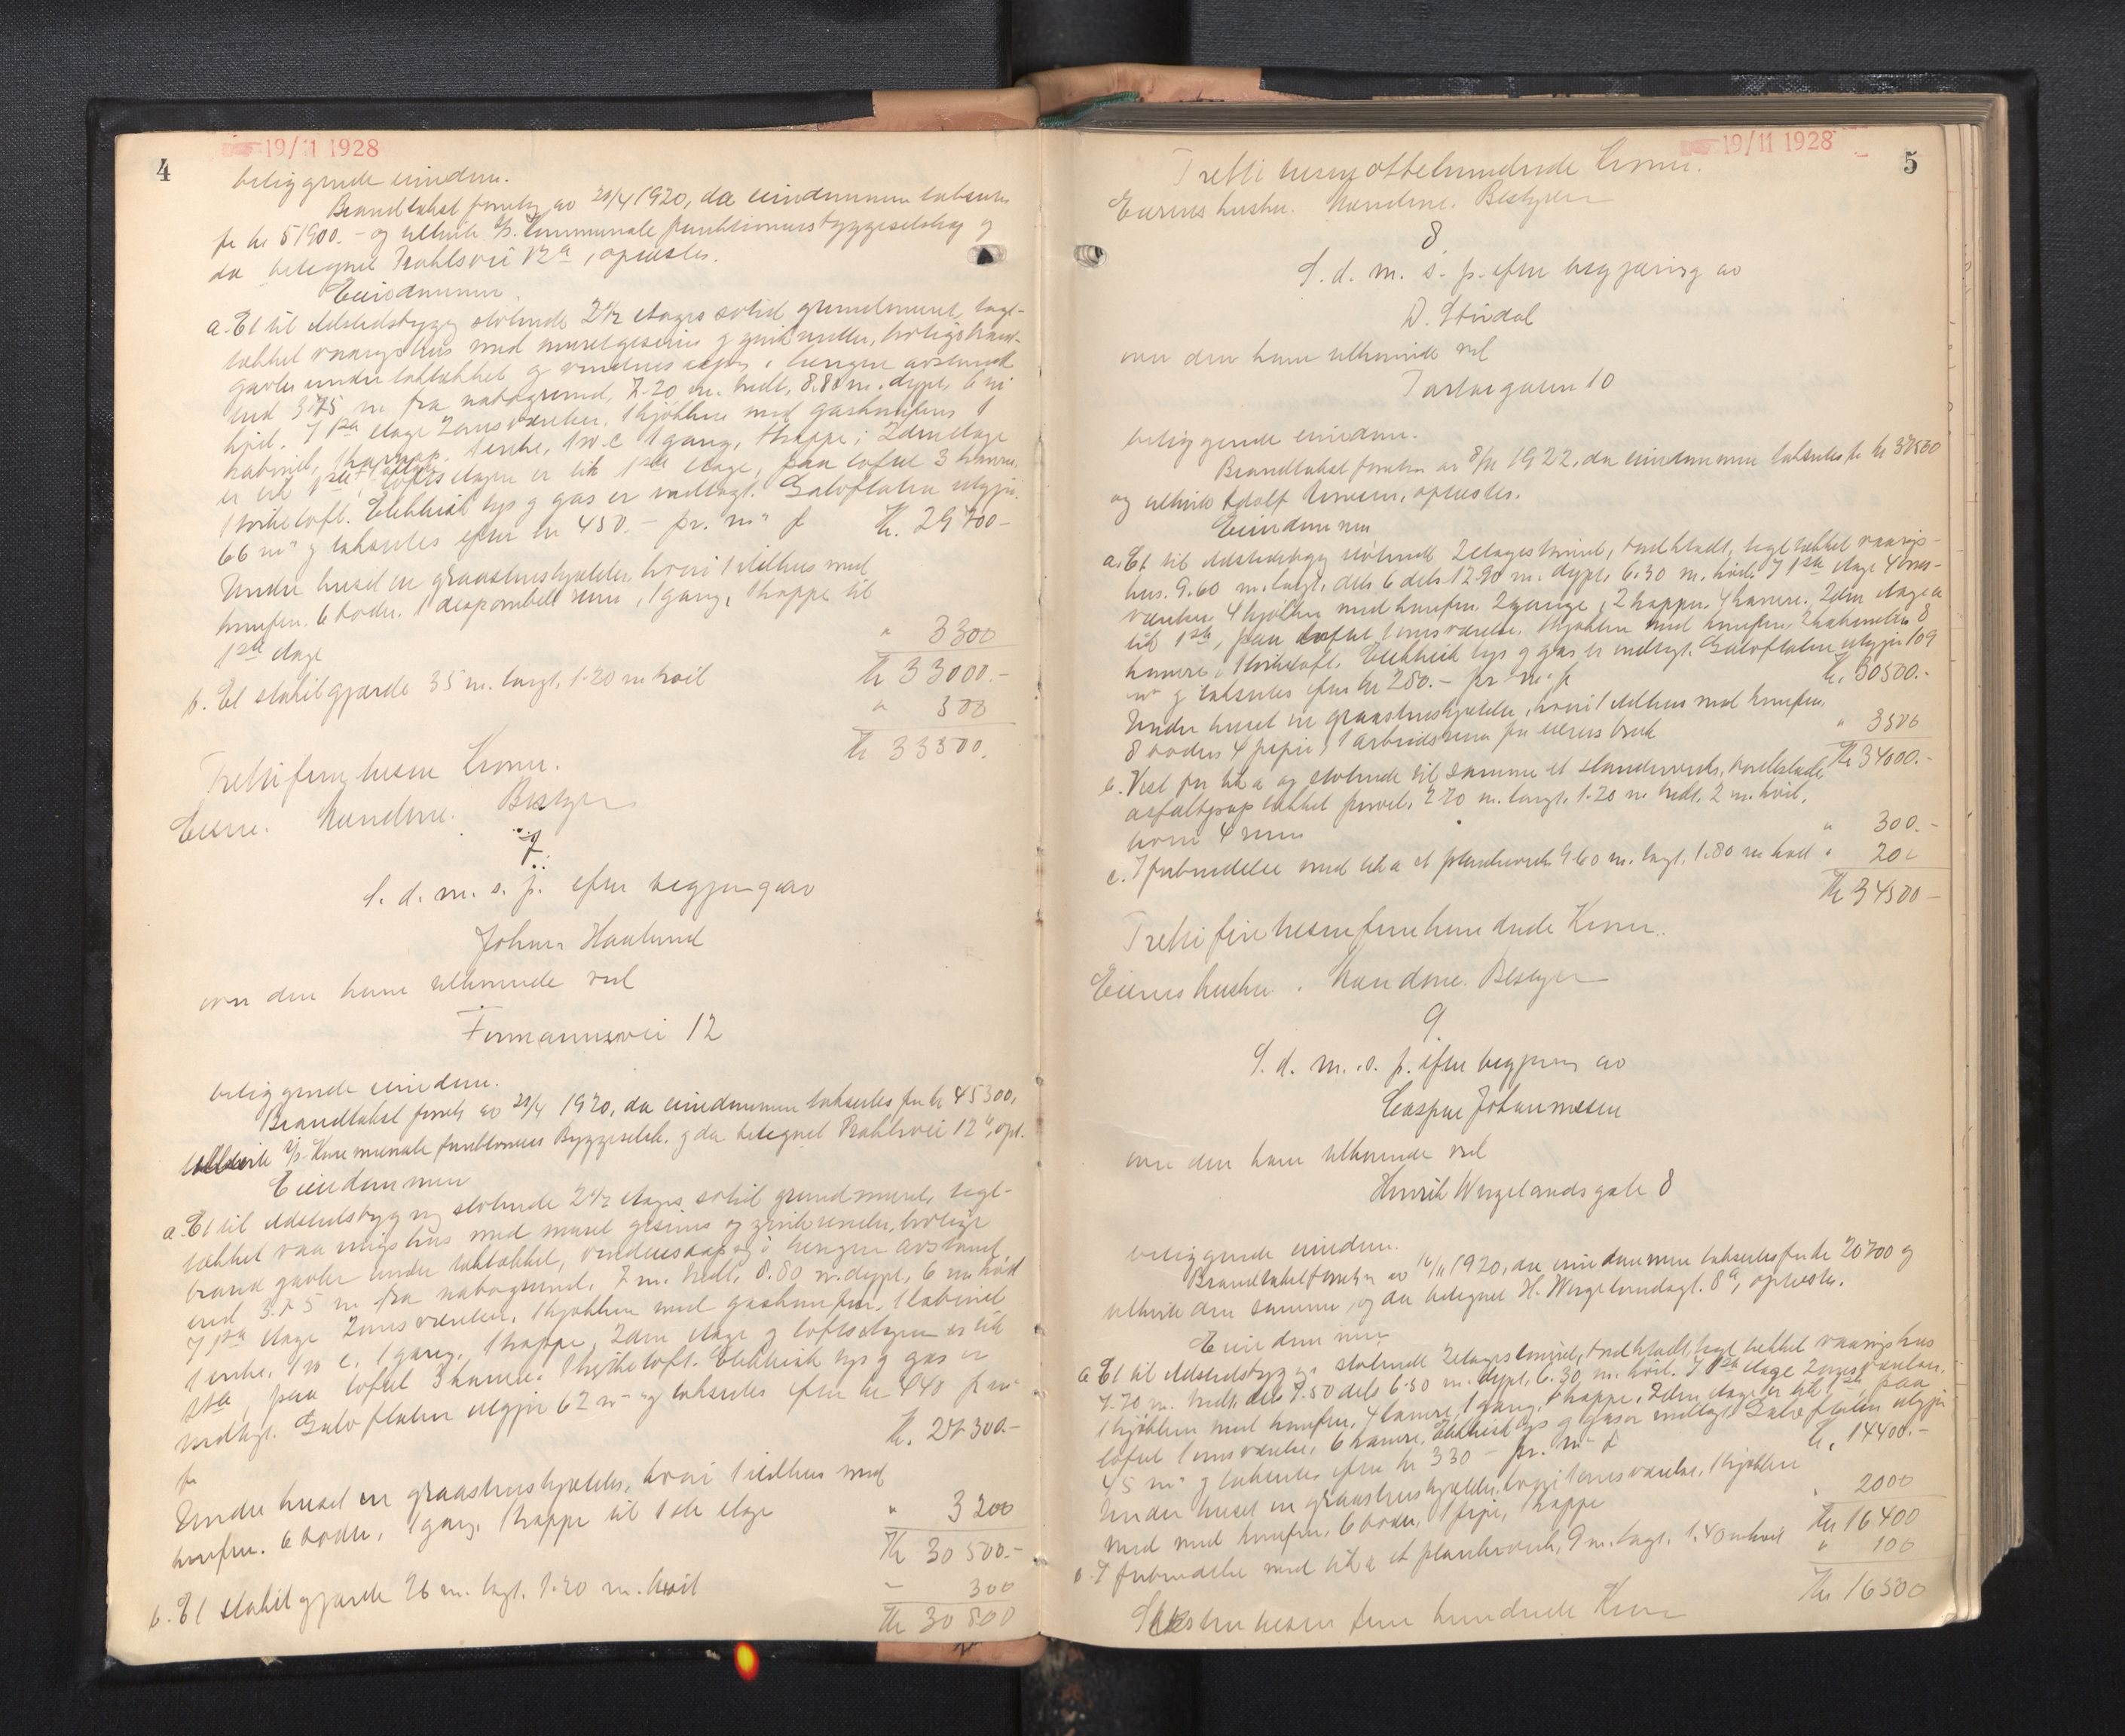 4
19/11 1928
beliggende eiendom.
Brandtakst foretat av 20/4 1920, da eiendommen takseres
for kr 51900.- og tilhørte A/S. Kommunale funktionærers byggeselskap og
da betegnet 12a, opleses.
Eiendommen
a. Et til Adskedsbygg støtende 2 1/2 etages solid grundmuret, tegl-
tækket vaaningshus med muret gesims og zinkrender,
gavler under taktækket og i længre avstand
end 3.75 m. fra nabogrund, 7.20 m. bredt, 8.80 m. dypt, 6 m
høit. I 1ste etage 2 onsværelser, 1 kjøkken med gaskomfur, 1
kabinet, 1 entre, 1 w.c. 1 gang, 1 trappe; 2den etage
er lik 1ste, loftsetagen er lik 1ste etage, paa loftet 3 kamre,
1 tørkeloft. Elektrisk lys og gas er indlagt. Gulvflaten utgjør
66 m² og takseres efter kr 450.- pr. m² f Kr. 29700-
Under huset er graastenskjælder, hvori 1 ildhus med
komfur. 6 boder. 1 disponibelt rum, 1 gang, 1 trappe til
1ste etage " 3300
Kr 33000.-
b. Et stakitgjærde 35 m. langt, 1.20 m høit " 500
Kr 33500.
Tretti fem tusen Kroner.
Eieren. Bestyrer
7.
S. d. m. s. p. efter begjæring av
Johan Haaland
over den ham tilhørende ved
Formannsvei 12
beliggende eiendom.
Brandtakst foretat av 20/4 1920, da eiendommen takseres for kr 45300,
tilhørte A/S. Kommunale funktionærers Byggeselsk. og da betegnet 12b, opl.
Eiendommen
a. Et til Adskedsbygg støtende 2 1/2 etages solid grundmuret, tegl-
tækket vaaningshus med muret gesims og zinkrender,
brand gavler under taktækket, og i længre avstand,
end 3.75 m fra nabogrund, 7 m. bredt, 8.80 m. dypt, 6 m. høit
I 1ste etage 2 onsværelser, 1 kjøkken med gaskomfur, 1 kabinet
1 entre, 1 w c, 1 gang, 1 trappe, 2den etage og loftsetagen er lik
1ste, paa loftet 3 kamre, 1 tørkeloft. Elektrisk lys og gas er
indlagt. Gulvflaten utgjør 62 m² og takseres efter kr 440 pr m²
for Kr. 27300.-
Under huset er graastenskjælder, hvori 1 ildhus med
komfur. 6 boder, 1 gang, 1 trappe til 1ste etage " 3200
Kr 30500.-
b. Et stakitgjærde 26 m. langt, 1.20 m. høit - 300
Kr 30800
5
19/11 1928
Tretti tusen ottehundrede Kroner.
Eierens hustru. Bestyrer
8
S. d. m. s. p. efter begjæring av
D. Stirdal
over den ham tilhørende ved
Tartargaten 10
beliggende eiendom.
Brandtakst foretat av 8/11 1922, da eiendommen takseres for kr 37500
og tilhørte Adolf, opleses.
Eiendommen
a. Et til Adskedsbygg støtende 2 etages tømret, bordklædt, tegltækket vaanings-
hus. 9.60 m. langt, dels 6 dels 12.90 m. dypt, 6.30 m. høit. I 1ste etage 4 ons-
værelser 4 kjøkken med komfur. 2 gange, 2 trapper. 4 kamre. 2den etage er
lik 1ste, paa loftet 1 onsværelse, 1 kjøkken med komfur, 2 kabinetter 8
kamre, 1 tørkeloft. Elektrisk lys og gas er indlagt. Gulvflaten utgjør 109
m² og takseres efter kr 280.- pr m² f Kr. 30500.-
Under huset er graastenskjælder, hvori 1 ildhus med komfur,
8 boder, 4 piper, 1 arbeidsrum for eierens bruk " 3500
Kr 34000.-
b. Vest for litr a og støtende til samme et standerverks, bordklædt,
asfaltpap tækket privet, 2.70 m. langt, 1.20 m bredt, 2 m. høit,
hvori 4 rum " 300.-
c. I forbindelse med litr a et plankeverk 9.60 m. langt, 1.80 m høit " 200
Kr 34500-
Tretti fire tusen femhundrede Kroner.
Eierens hustru. Bestyrer
9.
S. d. m. s. p. efter begjæring av
Caspar Johannessen
over den ham tilhørende ved
Henrik Wergelandsgate 8
beliggende eiendom.
Brandtakst foretat av 16/11 1920, da eiendommen takseres for kr 20700 og
tilhørte den samme, og da betegnet H. Wergelandsgt. 8a, opleses.
Eiendommen
a Et til Adskedsbygg støtende 2 etages tømret, bordklædt, tegl tækket vaaningshus
7.70 m. bredt, dels 7.50 dels 6.50 m. dypt, 6.30 m. høit. I 1ste etage 2 onsværelser,
1 kjøkken med komfur, 4 kamre, 1 gang, 1 trappe, 2den etage er lik 1ste, paa
loftet 1 onsværelse, 6 kamre, Elektrisk lys og gas er indlagt. Gulvflaten utgjør
45 m² og takseres efter kr 330 - pr. m² f Kr. 14400.-
Under huset er graastenskjælder, hvori 1 onsværelse, 1 kjøkken
med med komfur, 6 boder, 1 pipe, 1 trappe " 2000
Kr 16400
b. I forbindelse med litr a et plankeverk, 9 m. langt, 1.40 m høit " 100
Kr 16500
Seksten tusen fem hundrede Kroner